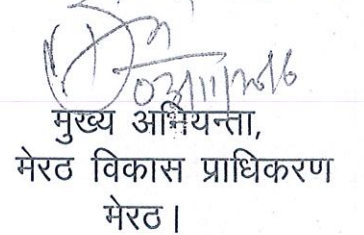 03/11/2016
मुख्य अभियन्ता,
मेरठ विकास प्राधिकरण
मेरठ।